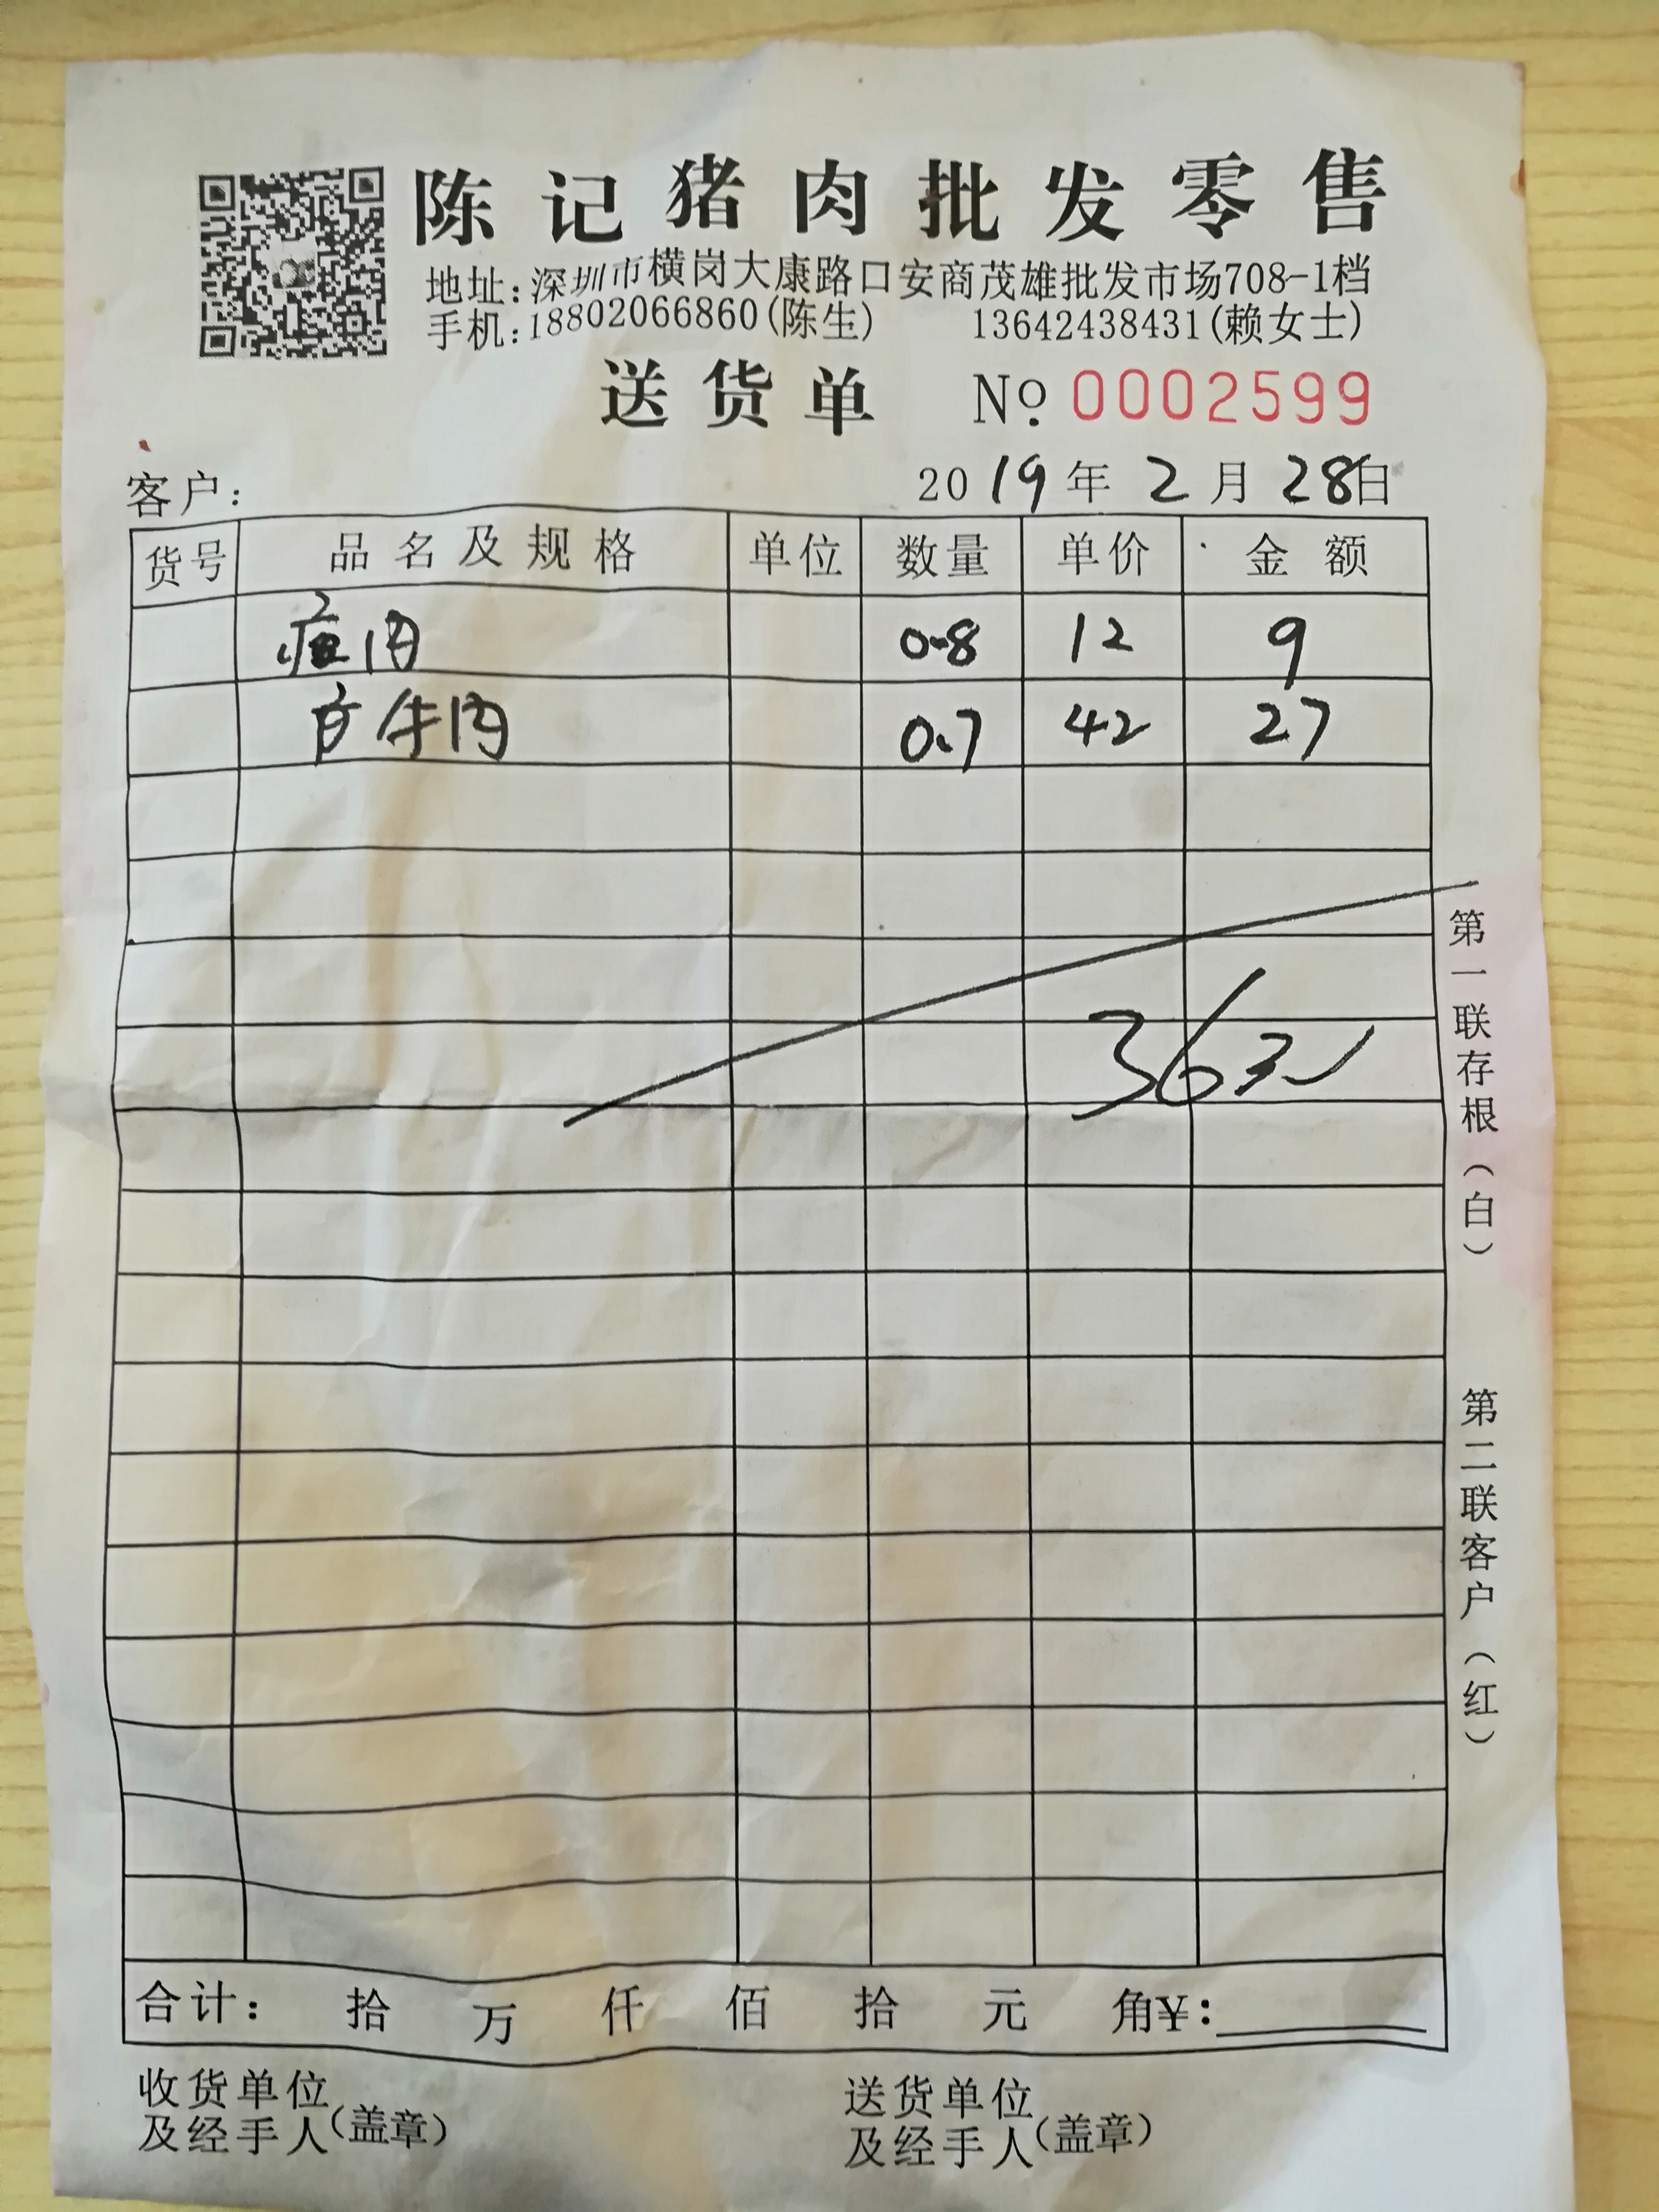 陈记猪肉批发零售
地址:深圳市横岗大康路口安商茂雄批发市场708-1档
手机:18802066860(陈生) 13642438431(赖女士)
送货单 No. 0002599
客户: 2019年2月28日
货号 品名及规格 单位 数量 单价 金额
肉 0.8 12 9
牛肉 0.7 42 27
36元
第一联存根(白)
第二联客户(红)
合计: 拾 万 仟 佰 拾 元 角¥:
收货单位及经手人(盖章) 送货单位及经手人(盖章)